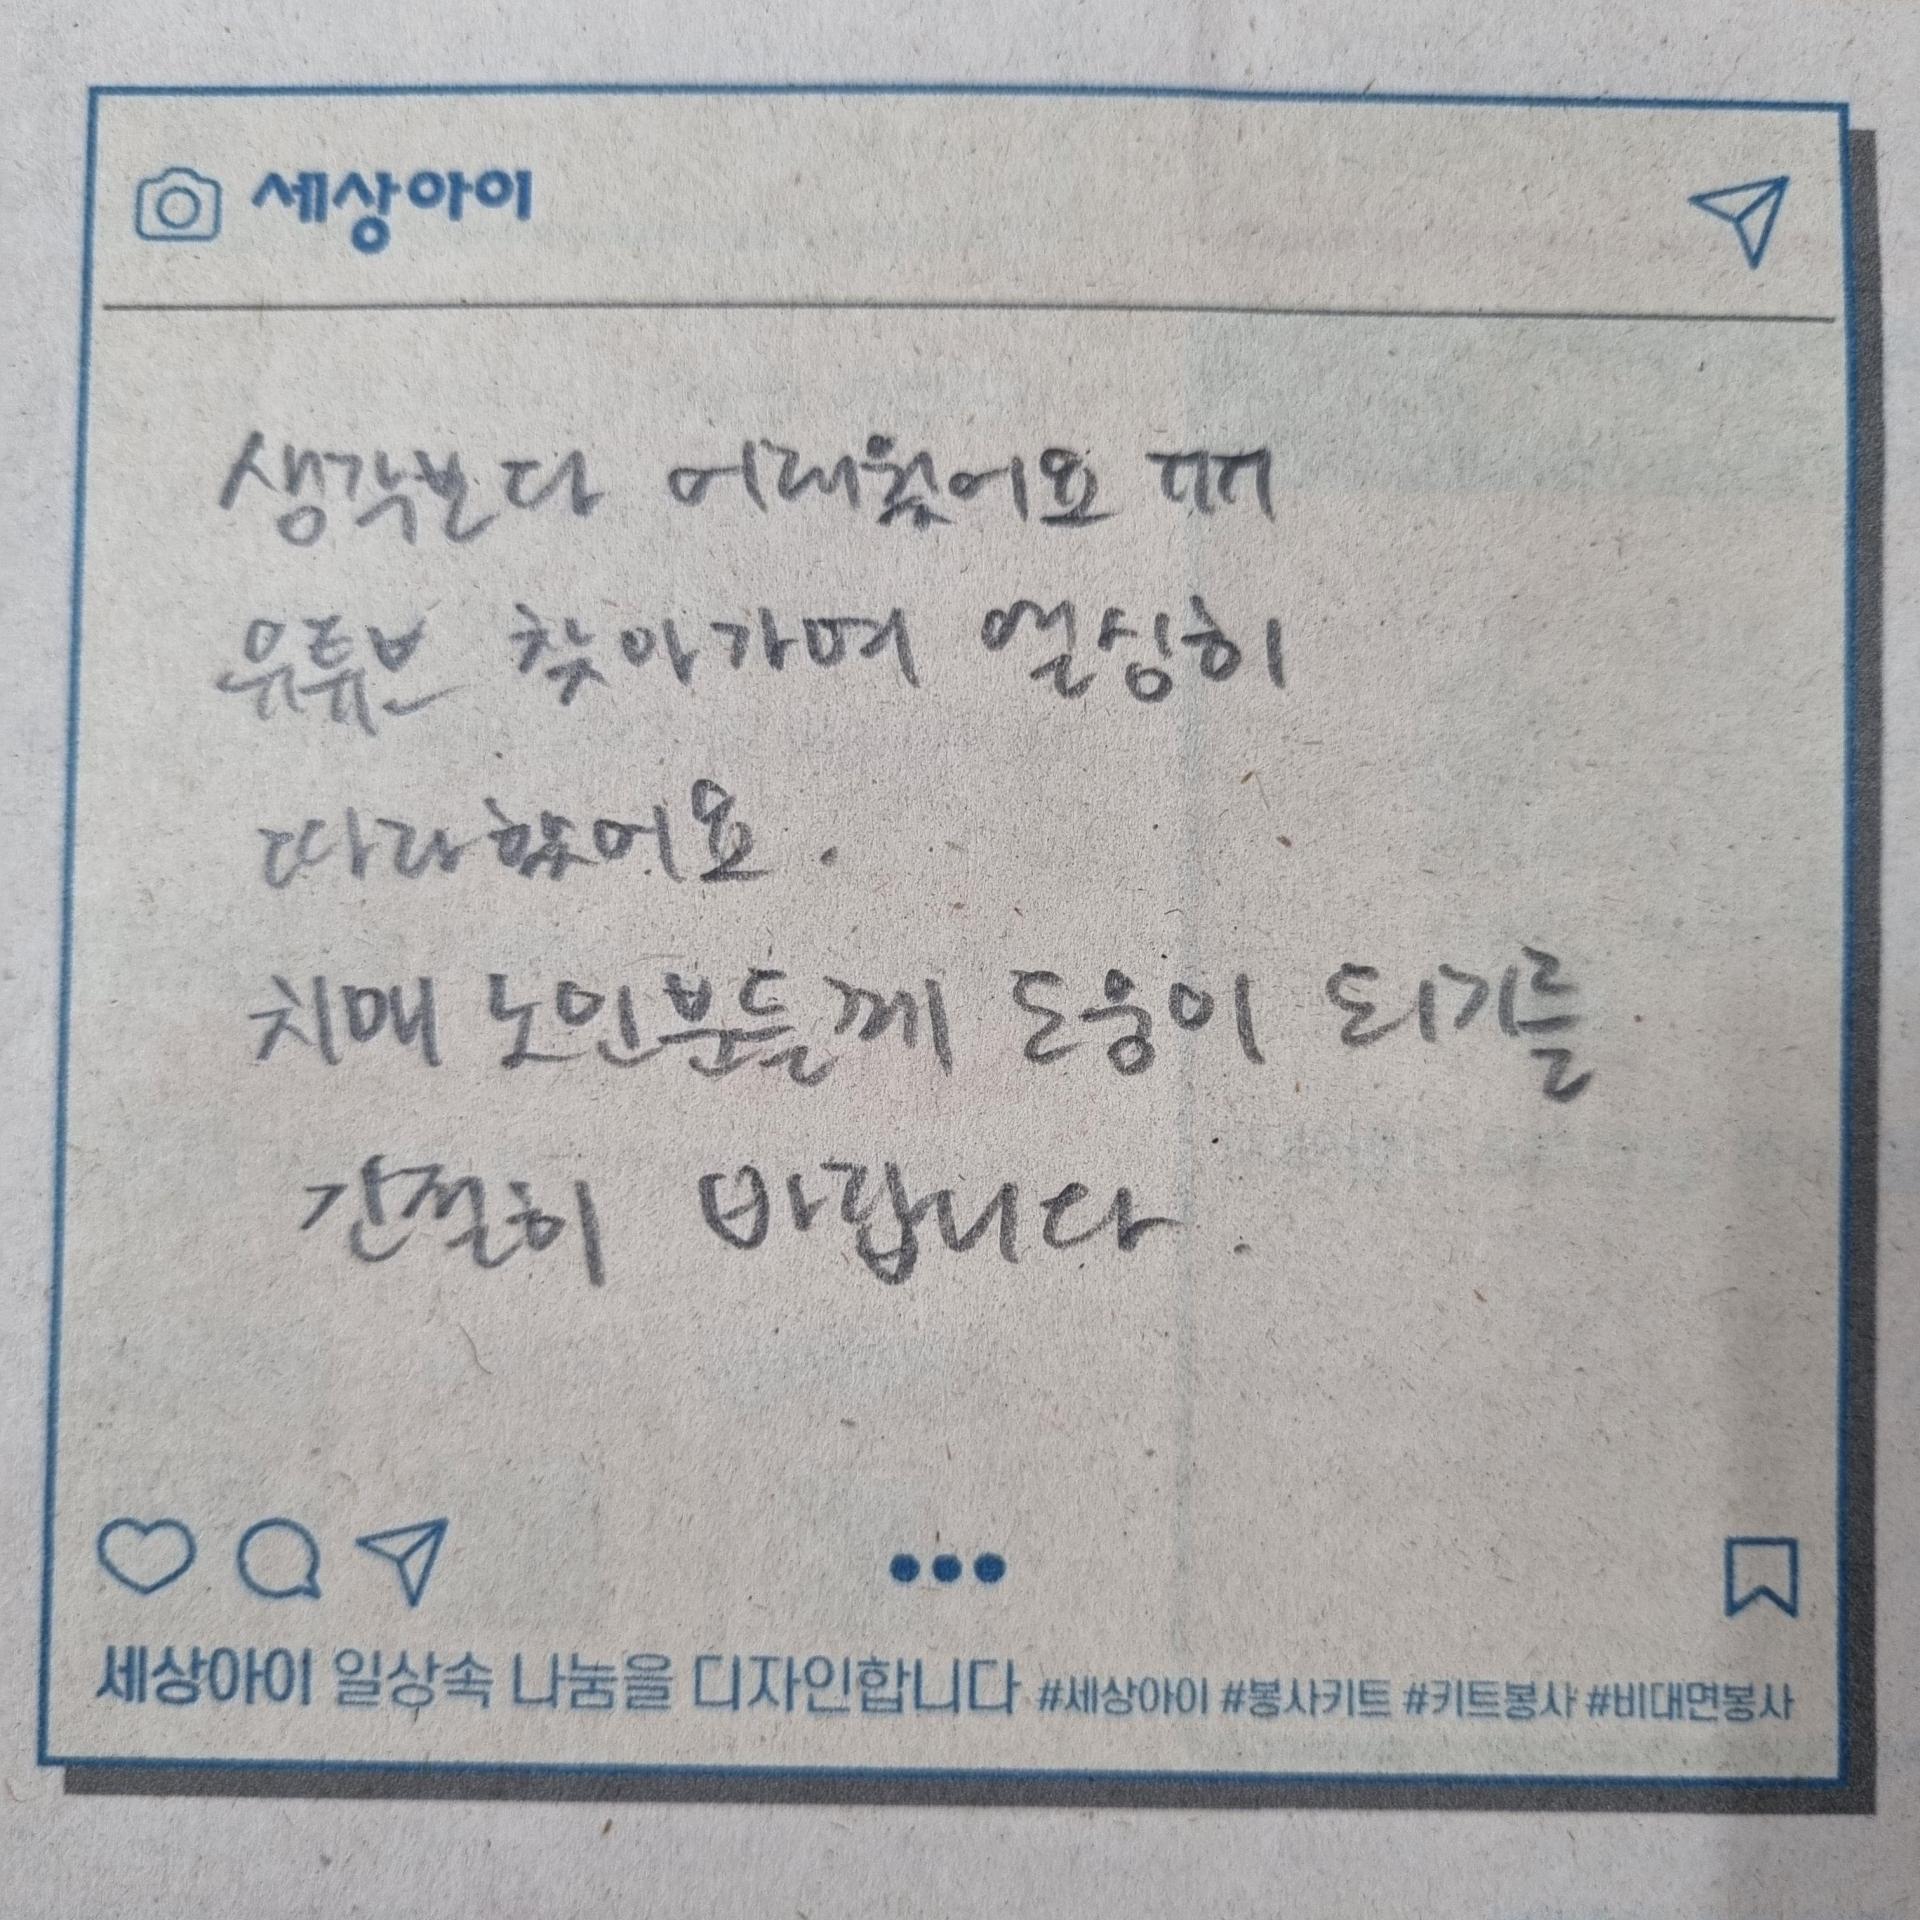 세상아이
생각보다 어려웠어요 ㅠㅠ
유튜브 찾아가며 열심히
따라했어요.
치매 노인분들께 도움이 되기를
간절히 바랍니다.
세상아이 일상속 나눔을 디자인합니다 #세상아이 #봉사키트 #키트봉사 #비대면봉사